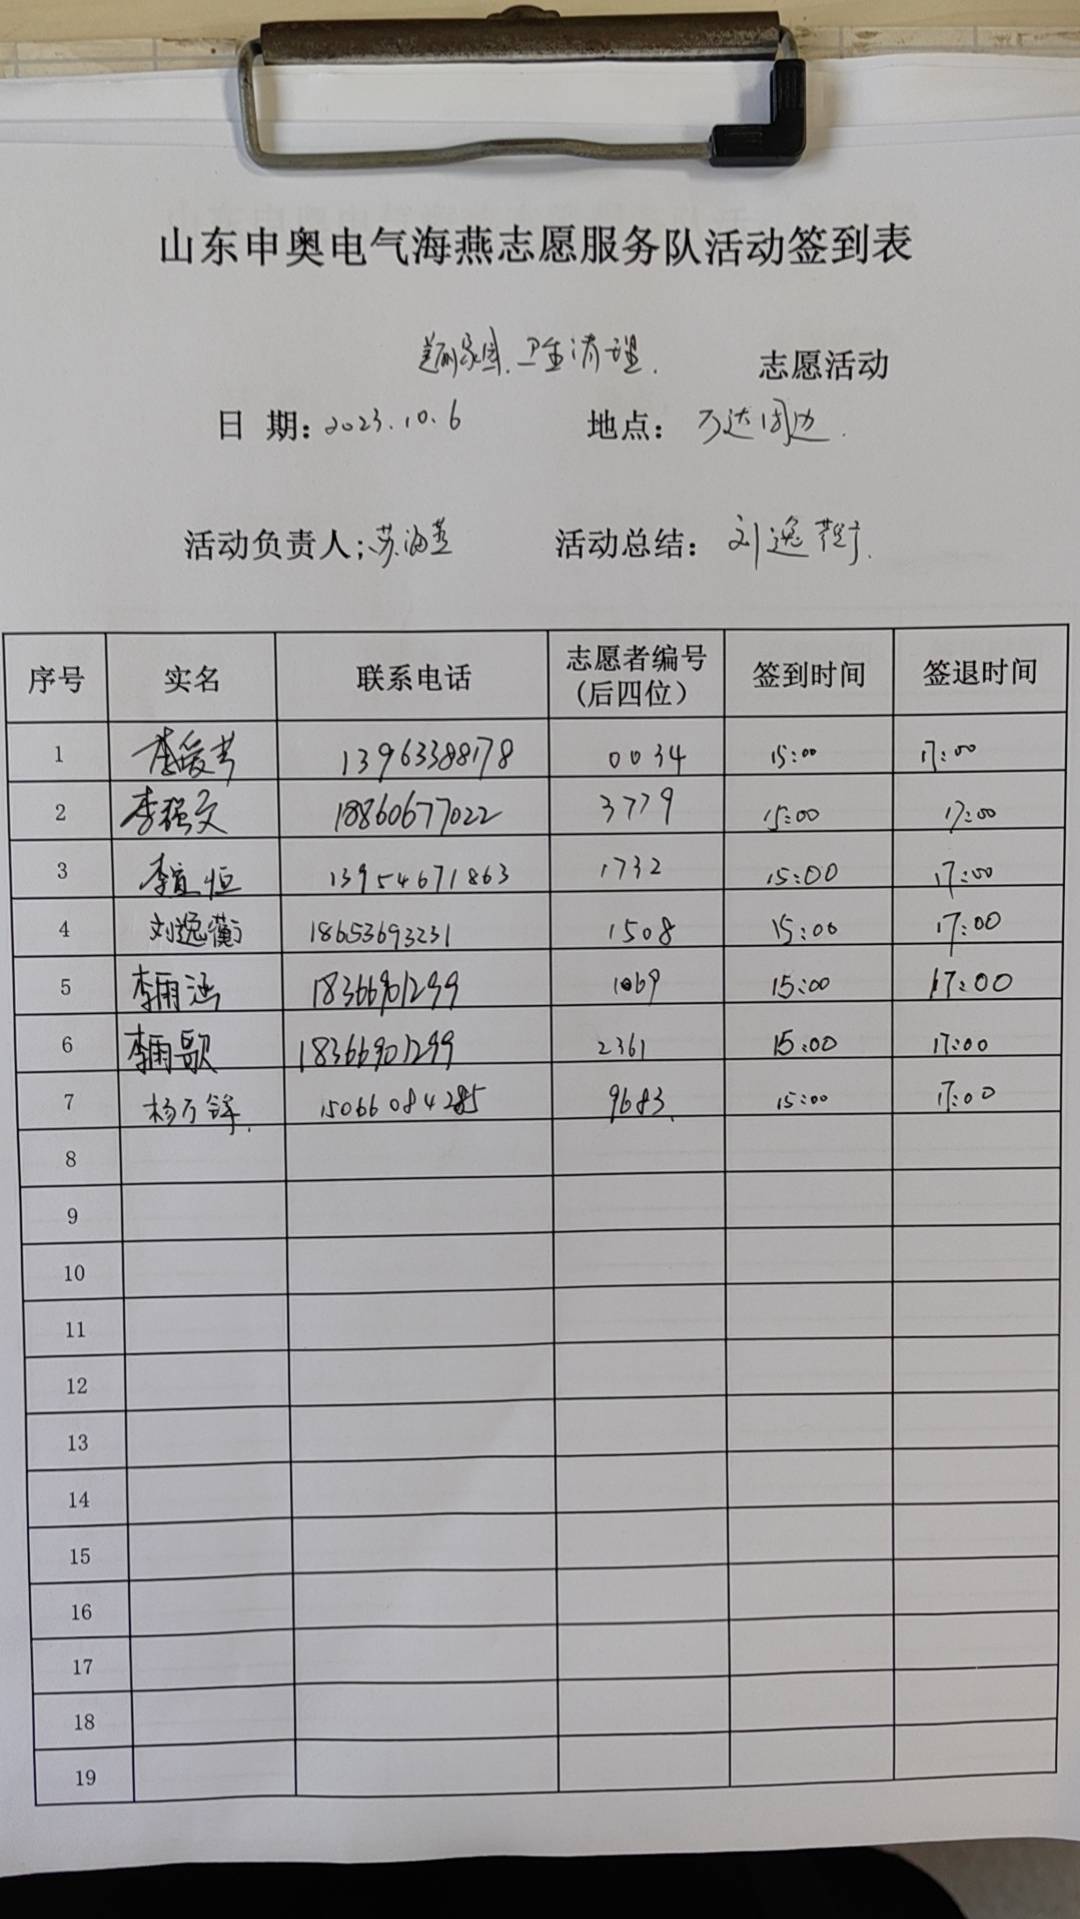 山东申奥电气海燕志愿服务队活动签到表
美丽家园.卫生清理. 志愿活动
日 期: 2023.10.6 地点: 万达周边.
活动负责人; 苏海 活动总结: 刘逸蘅.
序号 实名 联系电话 志愿者编号(后四位) 签到时间 签退时间
1 李爱 13963388178 0034 15:00 17:00
2 李强文 18860677022 3779 15:00 17:00
3 李宜恒 13954671863 1732 15:00 17:00
4 刘逸蘅 18653693231 1508 15:00 17:00
5 李雨涵 18366901299 1069 15:00 17:00
6 李雨歌 18366901299 2361 15:00 17:00
7 杨万锋. 15066084285 9683. 15:00 17:00
8
9
10
11
12
13
14
15
16
17
18
19